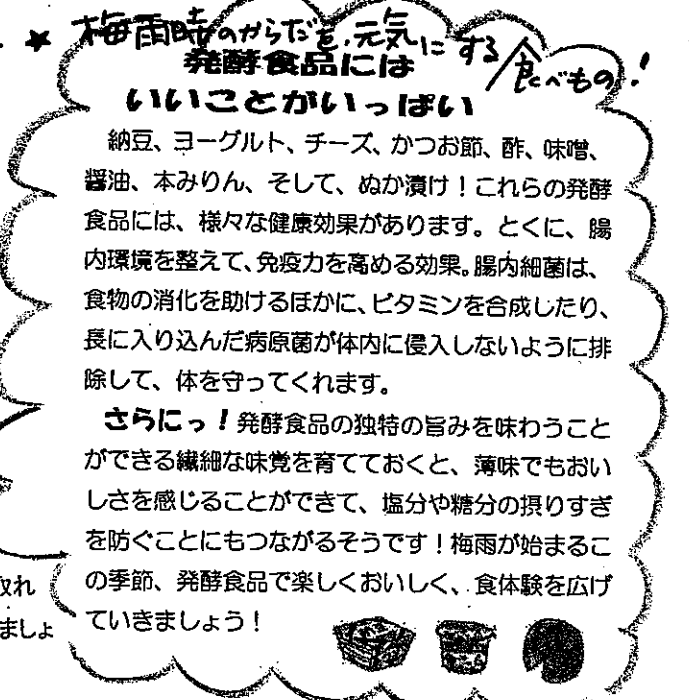 ★梅雨時のからだを、元気にする食べもの!
発酵食品には
いいことがいっぱい
納豆、ヨーグルト、チーズ、かつお節、酢、味噌、
醤油、本みりん、そして、ぬか漬け！これらの発酵
食品には、様々な健康効果があります。とくに、腸
内環境を整えて、免疫力を高める効果。腸内細菌は、
食物の消化を助けるほかに、ビタミンを合成したり、
長に入り込んだ病原菌が体内に侵入しないように排
除して、体を守ってくれます。
さらにっ！発酵食品の独特の旨みを味わうこと
ができる繊細な味覚を育てておくと、薄味でもおい
しさを感じることができて、塩分や糖分の摂りすぎ
を防ぐことにもつながるそうです！梅雨が始まるこ
の季節、発酵食品で楽しくおいしく、食体験を広げ
ていきましょう！
取れ
ましょ